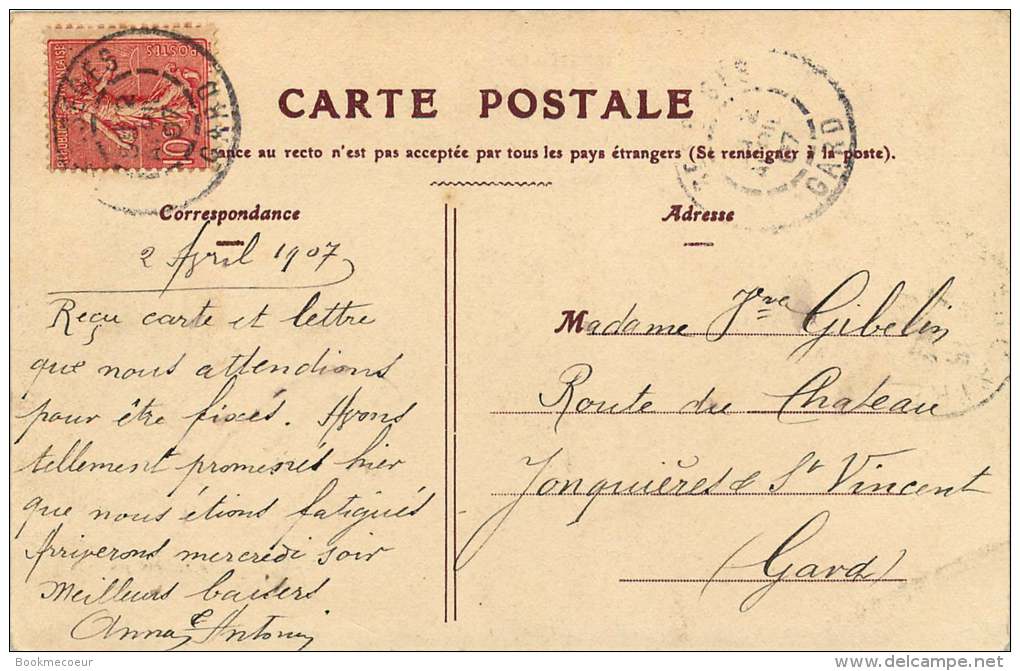 CARTE POSTALE
ance au recto n'est pas acceptée par tous les pays étrangers (Se renseigner à la poste).
Correspondance
2 Avril 1907
Reçu carte et lettre
que nous attendions
pour être fixés. Avons
tellement promenés hier
que nous étions fatigués
Arriverons mercredi soir
Meilleurs baisers
Anna et Antonin
Adresse
Madame Vve Gibelin
Route du Chateau
Jonquières & St Vincent
(Gard)
POSTES
GARD
GARD
07
Bookmecoeur
delcampe.net